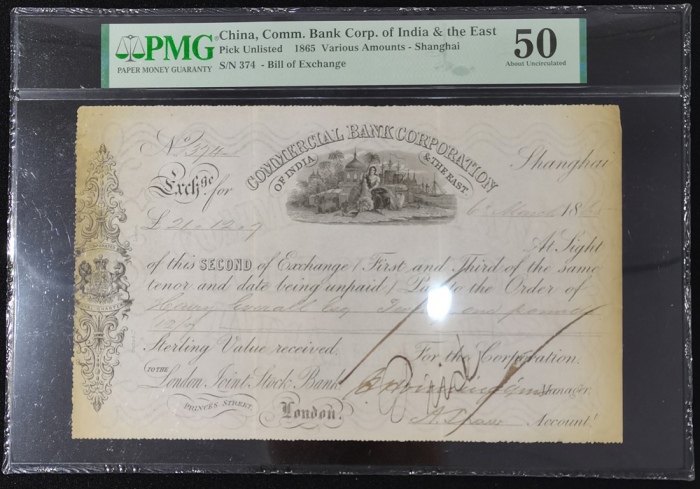 PMG
PAPER MONEY GUARANTY
China, Comm. Bank Corp. of India & the East
Pick Unlisted 1865 Various Amounts - Shanghai
S/N 374 - Bill of Exchange
50
About Uncirculated
No. 374
COMMERCIAL BANK CORPORATION
OF INDIA & THE EAST.
Shanghai
Exchge for
6 March 186
£21.12.9
At Sight
of this SECOND of Exchange (First and Third of the same
tenor and date being unpaid) Pay to the Order of
Henry Esq Twenty one pounds
12/9
Sterling Value received.
For the Corporation.
TO THE
London Joint Stock Bank
Manager.
PRINCES STREET
London.
Accountt